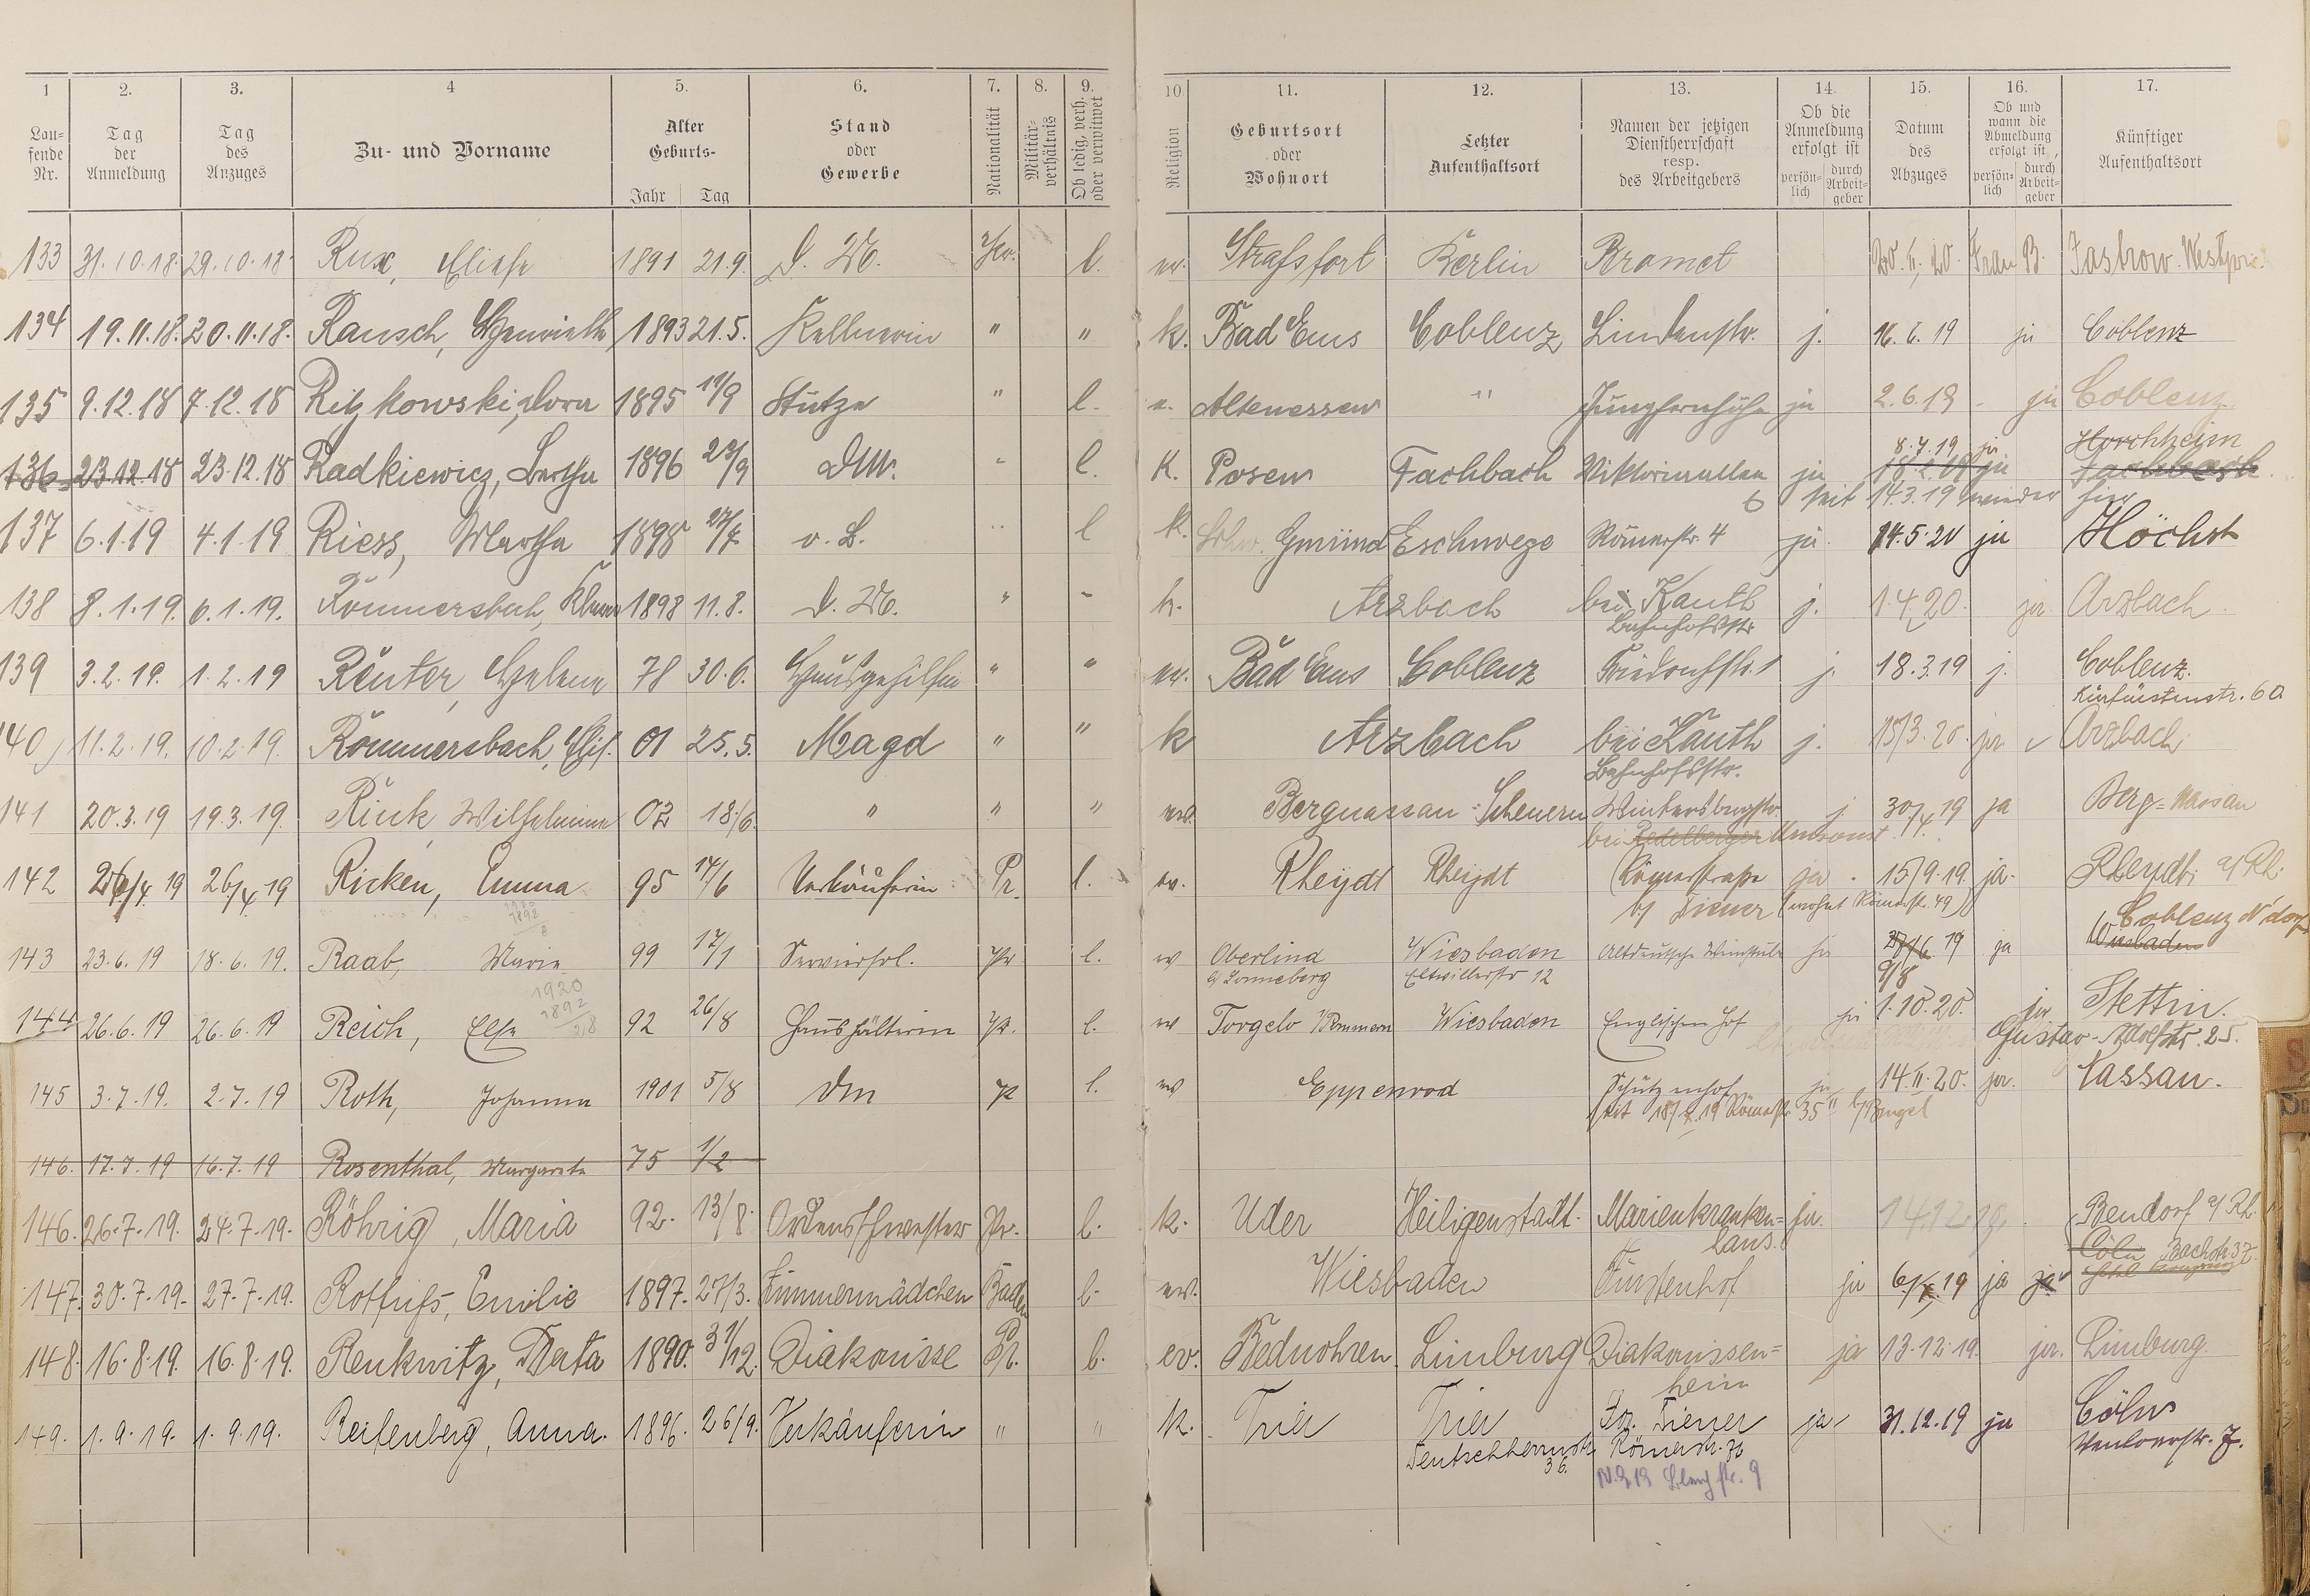 1 2. 3. 4 5. 6. 7. 8. 9. 10 11. 12. 13. 14. 15. 16. 17.
Lau-
fende
Nr.
Tag
der
Anmeldung
Tag
des
Anzuges
Zu- und Vorname
Alter
Geburts-
Jahr Tag
Stand
oder
Gewerbe
Nationalität
Militär-
verhältnis
Ob ledig, verh.
oder verwitwet
Religion
Geburtsort
oder
Wohnort
Letzter
Aufenthaltsort
Namen der jetzigen
Dienstherrschaft
resp.
des Arbeitgebers
Ob die
Anmeldung
erfolgt ist
persön-
lich
durch
Arbeit-
geber
Datum
des
Abzuges
Ob und
wann die
Abmeldung
erfolgt ist,
persön-
lich
durch
Arbeit-
geber
Künftiger
Aufenthaltsort
133 31.10.18. 29.10.18. Rux, Eliese 1891 21.9. D. M. Pr. l. ev. Strassfort Berlin Bramet Frau B. Jastrow. Westpr.
134 19.11.18. 20.11.18. Rausch, Henriette 1893 21.5. Kellnerin " " k. Bad Ems Coblenz Lindenstr. j. 16.6.19 ja Coblenz
135 9.12.18 7.12.18 Ritzkowski, Dora 1895 Stütze " l. e. Altenessen " Jungfernhöhe ja 2.6.19 ja Coblenz
8.4.19 ja Horchheim
136 23.12.18 23.12.18 Radkiewicz, Bertha 1896 23/9 DM. " l. K. Posen Fachbach Viktoriaallee ja ja Fachbach
6 seit 14.3.19 wieder hier
137 6.1.19 4.1.19 Riess, Martha 1898 27/7 o. B. " l k. Schw. Gmünd Eschwege Römerstr. 4 ja. 14.5.20 ja Höchst
138 8.1.19. 6.1.19. Rommersbach, 1898 11.8. D. M. " " k. Arzbach bei Kauth j. 1.4.20. ja Arzbach
Bahnhofstr.
139 3.2.19. 1.2.19 Reuter, Helene 78 30.6. Hausgehilfin " " ev. Bad Ems Coblenz Friedrichstr. 1 j. 18.3.19 j. Coblenz.
Kurfürstenstr. 60
140 11.2.19. 10.2.19. Rommersbach, Elis. 01 25.5. Magd " " k Arzbach bei Kauth j. 15/3.20. ja Arzbach
Bahnhofsstr.
141 20.3.19 19.3.19. Rink, Wilhelmine 02 18/6. " " " ev. Bergnassau-Scheuern Wintersbergstr. j 30/4.19 ja Berg-Nassau
bei Redelberger Umsonst
142 26/4.19 26/4.19 Ricken, Emma 95 14/6 Verkäuferin Pr. l. ev. Rheydt Rheydt Römerstrasse ja 15/9.19. ja. Rheydt a/Rh.
b/ Diener (wohnt Römerstr. 49)
1920
1892
8
Coblenz N'dorf
143 23.6.19 18.6.19. Raab, Marie 99 17/1 Servierfrl. Pr l. ev Oberlind Wiesbaden Altdeutsche Weinstube ja 27/6.19 ja Wiesbaden
a/ Sonneberg Eltvillerstr 12 9/8
1920
1892
28
144 26.6.19 26.6.19 Reich, Else 92 26/8 Haushälterin Pr. l. ev Torgelo i/Pommern Wiesbaden Englischen Hof ja 1.10.20. ja Stettin.
Gustav-Adolfstr. 25.
145 3.7.19. 2.7.19 Roth, Johanna 1901 5/8 Dm Pr l. ev Eppenrod Schützenhof ja 14.II.20. ja. Nassau.
seit 18/7.19 Römerstr 35" b/ Bingel
146. 17.7.19 16.7.19 Rosenthal, Margarete 75 1/2
146. 26.7.19. 24.7.19. Röhrig, Maria 92. 13/8. Ordensschwester Pr. l. k. Uder Heiligenstadt. Marienkranken- ja. 14.12.19. Bendorf a/Rh.
haus. Cöln Bachstr. 37.
147. 30.7.19. 27.7.19. Rotfuss, Emilie 1897. 27/3. Zimmermädchen Baden l. ev. Wiesbaden Fürstenhof ja 6/X.19 ja ja
148. 16.8.19. 16.8.19. Renkwitz, Marta 1890. 31/12. Diakonisse Pr. l. ev. Bednohren Limburg Diakonissen- ja 13.12.19. ja. Limburg.
heim
149. 1.9.19. 1.9.19. Reifenberg, Anna. 1896. 26/9. Verkäuferin " " k. Trier Trier Jos. Diener ja 31.12.19 ja Cöln
Deutschherrnstr. Römerstr. Venloerstr. 7.
36.